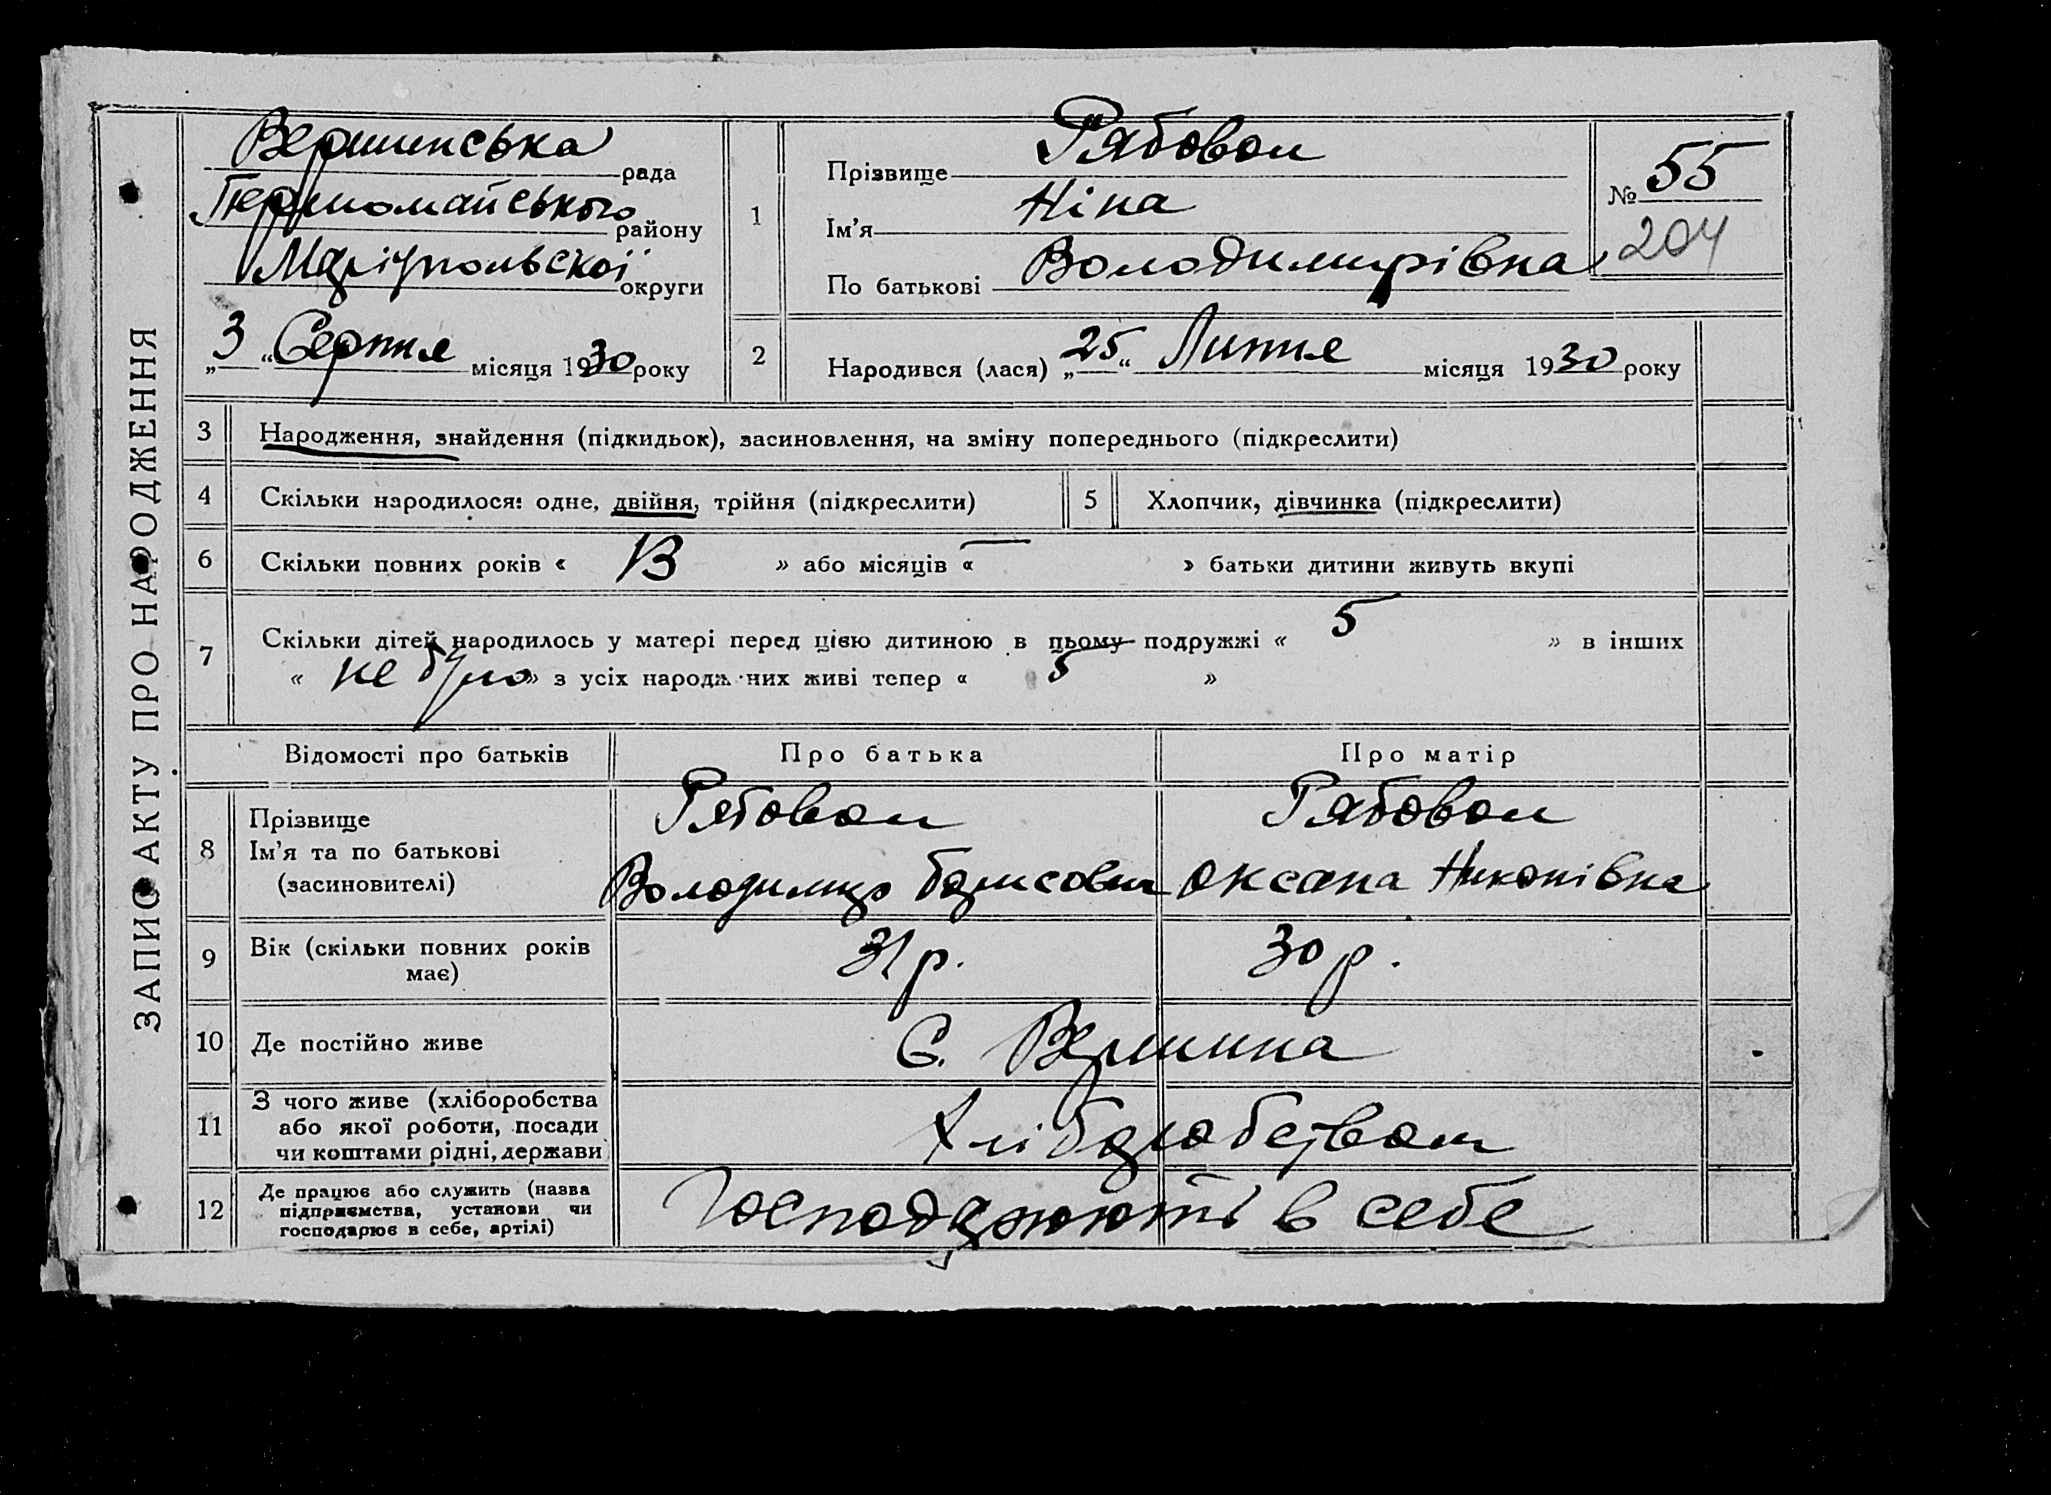 ЗАПИС АКТУ ПРО НАРОДЖЕННЯ
Вершинська рада
Першомайського району
Маріупольскої округи
„3“ Серпня місяця 1930 року
1 Прізвище Рябовол
Ім'я Ніна
По батькові Володимирівна
№ 55
204
2 Народився (лася) „25“ Липня місяця 1930 року
3 Народження, знайдення (підкидьок), засиновлення, на зміну попереднього (підкреслити)
4 Скільки народилося: одне, двійня, трійня (підкреслити) 5 Хлопчик, дівчинка (підкреслити)
6 Скільки повних років « 13 » або місяців « — » батьки дитини живуть вкупі
7 Скільки дітей народилось у матері перед цією дитиною в цьому подружжі « 5 » в інших
« не було » з усіх народж них живі тепер « 5 »
Відомості про батьків Про батька Про матір
8 Прізвище Рябовол Рябовол
Ім'я та по батькові Володимир Борисович Оксана Никонівна
(засиновителі)
9 Вік (скільки повних років має) 31 р. 30 р.
10 Де постійно живе С. Вершина
11 З чого живе (хліборобства
або якої роботи, посади
чи коштами рідні, держави Хліборобством
12 Де працює або служить (назва
підприємства, установи чи
господарює в себе, артілі) Господарюють в себе